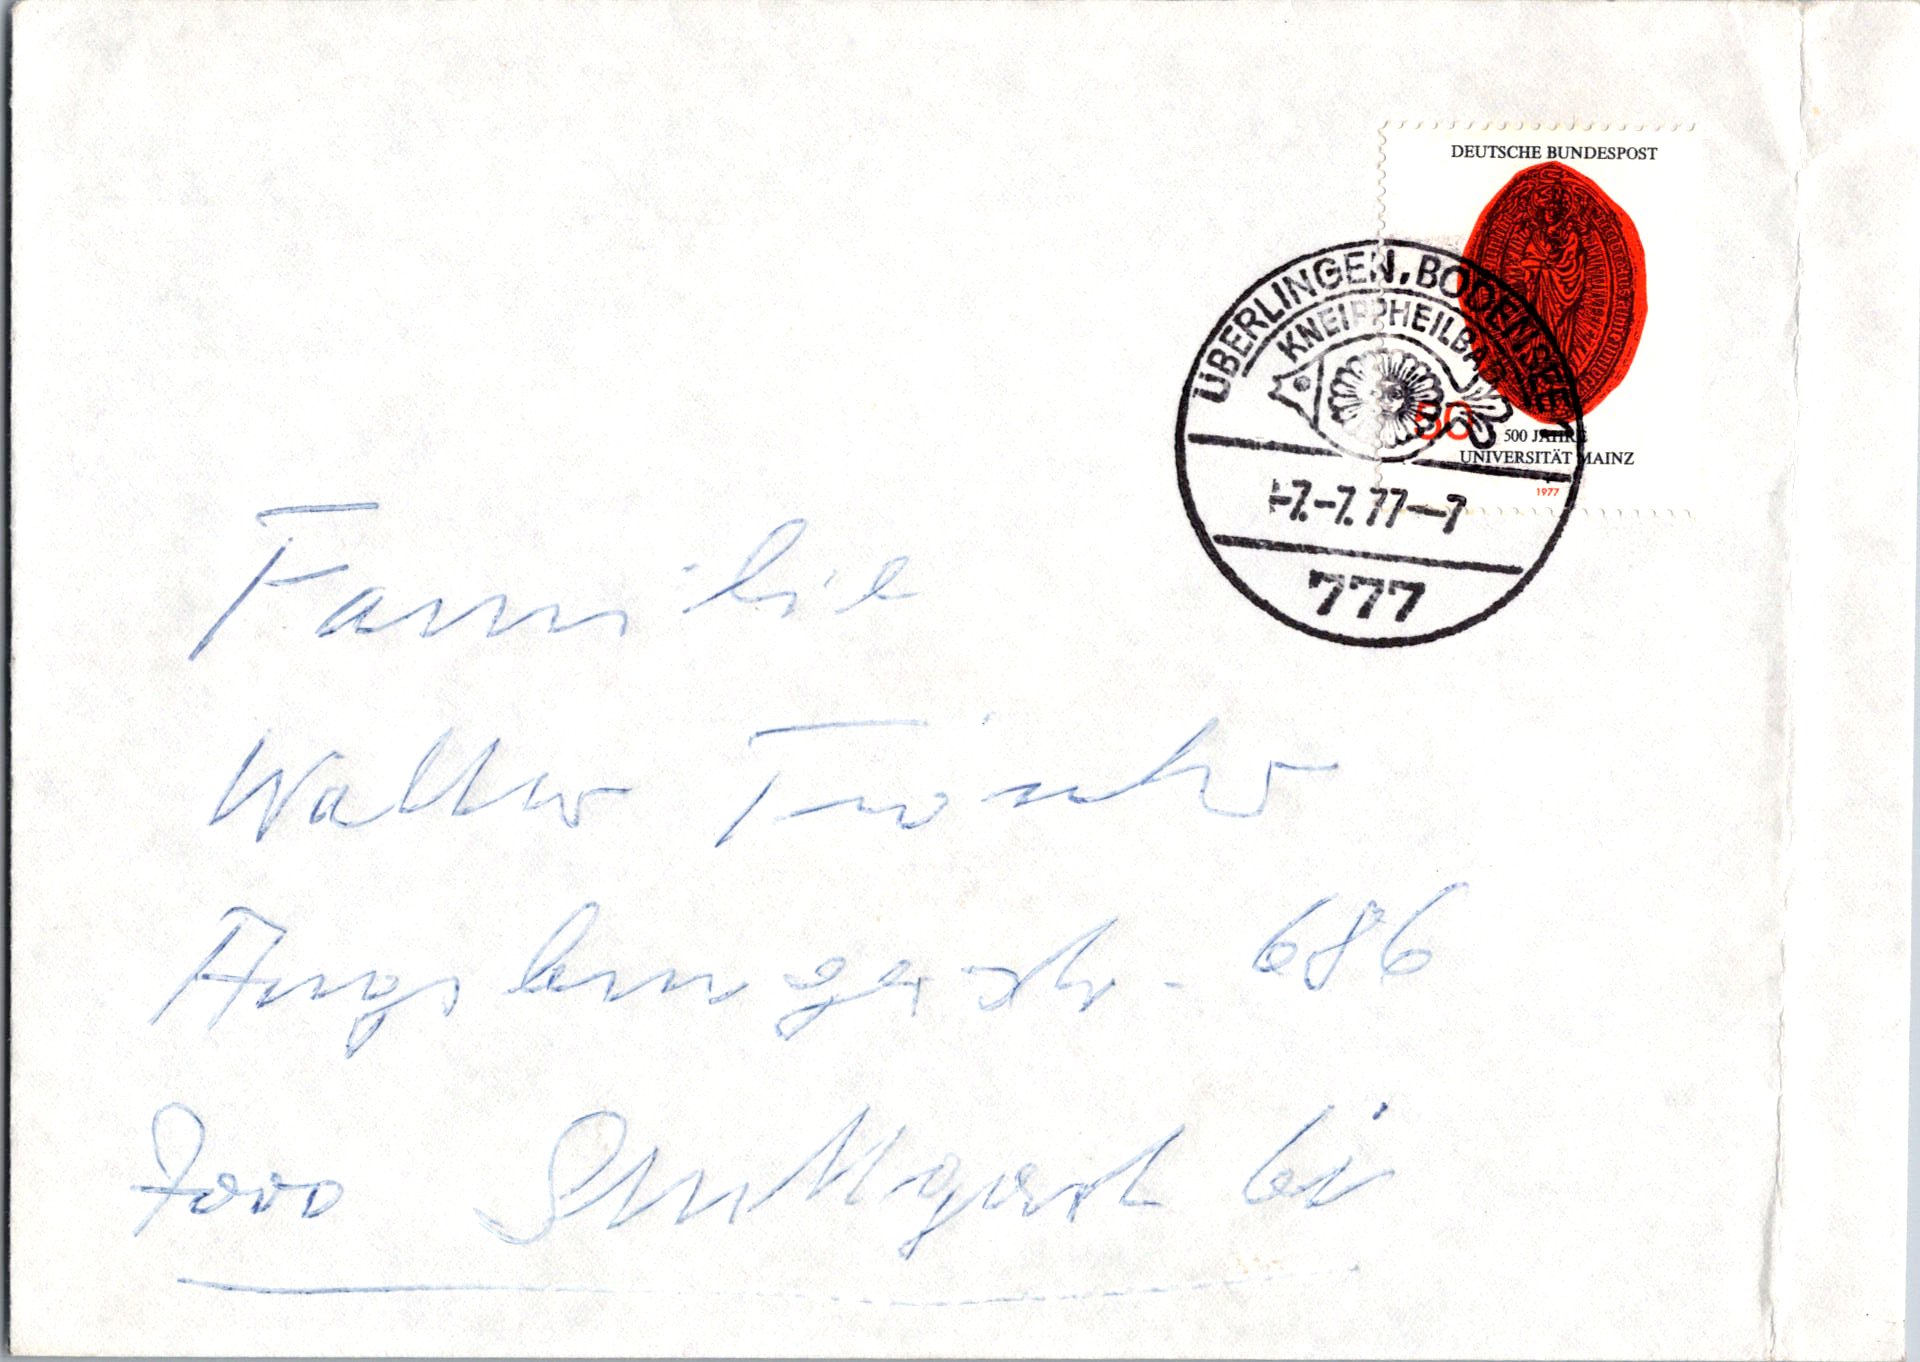 DEUTSCHE BUNDESPOST
50
500 JAHRE
UNIVERSITÄT MAINZ
1977
ÜBERLINGEN, BODENSEE 1
KNEIPPHEILBAD
-7.-7.77-7
777
Familie
Walter
Augsburgerstr. 686
7000 Stuttgart 61